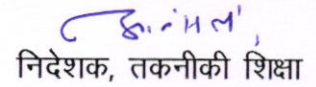 निदेशक, तकनीकी शिक्षा